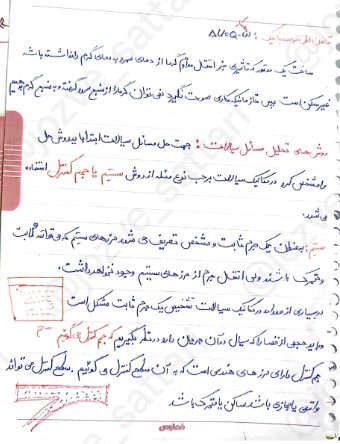 قانون دوم ترمودینامیک : ΔU=Q-W
ساخت یک موتور که تاثیری جز انتقال مداوم گرما از دمای سرد به دمای گرم را داشته باشد
غیر ممکن است یعنی تا زمانیکه کاری صورت نگیرد نمی توان گرما را از منبع سرد گرفته و به منبع گرم دهیم
روش های تحلیل مسائل سیالات : جهت حل مسائل سیالات ابتدا باید روش حل
را مشخص کرد در مکانیک سیالات برحسب نوع مسئله از دو روش سیستم یا حجم کنترل استفاده
می شود.
سیستم : بعنوان یک جرم ثابت و مشخص تعریف می شود مرزهای سیستم می تواند ثابت
و متحرک باشند ولی انتقال جرم از مرزهای سیستم وجود نخواهد داشت.
در بسیاری از موارد در مکانیک سیالات تشخیص یک جرم ثابت مشکل است
و باید حجمی از فضا را که سیال در آن جریان دارد در نظر بگیریم که حجم کنترل می گوئیم
حجم کنترل دارای مرزهای هندسی است که به آن سطح کنترل می گوئیم. سطح کنترل می تواند
واقعی یا مجازی باشد ساکن یا متحرک باشد